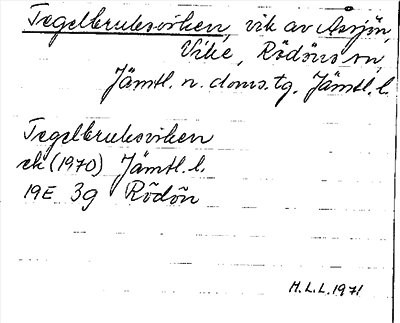 Tegelbruksviken, vik av Åssjön,
Vike, Rödöns sn,
Jämtl. n. doms. tg. Jämtl. l.
Tegelbruksviken
ek (1970) Jämtl. l.
19E 3g Rödön
H.L.L. 1971